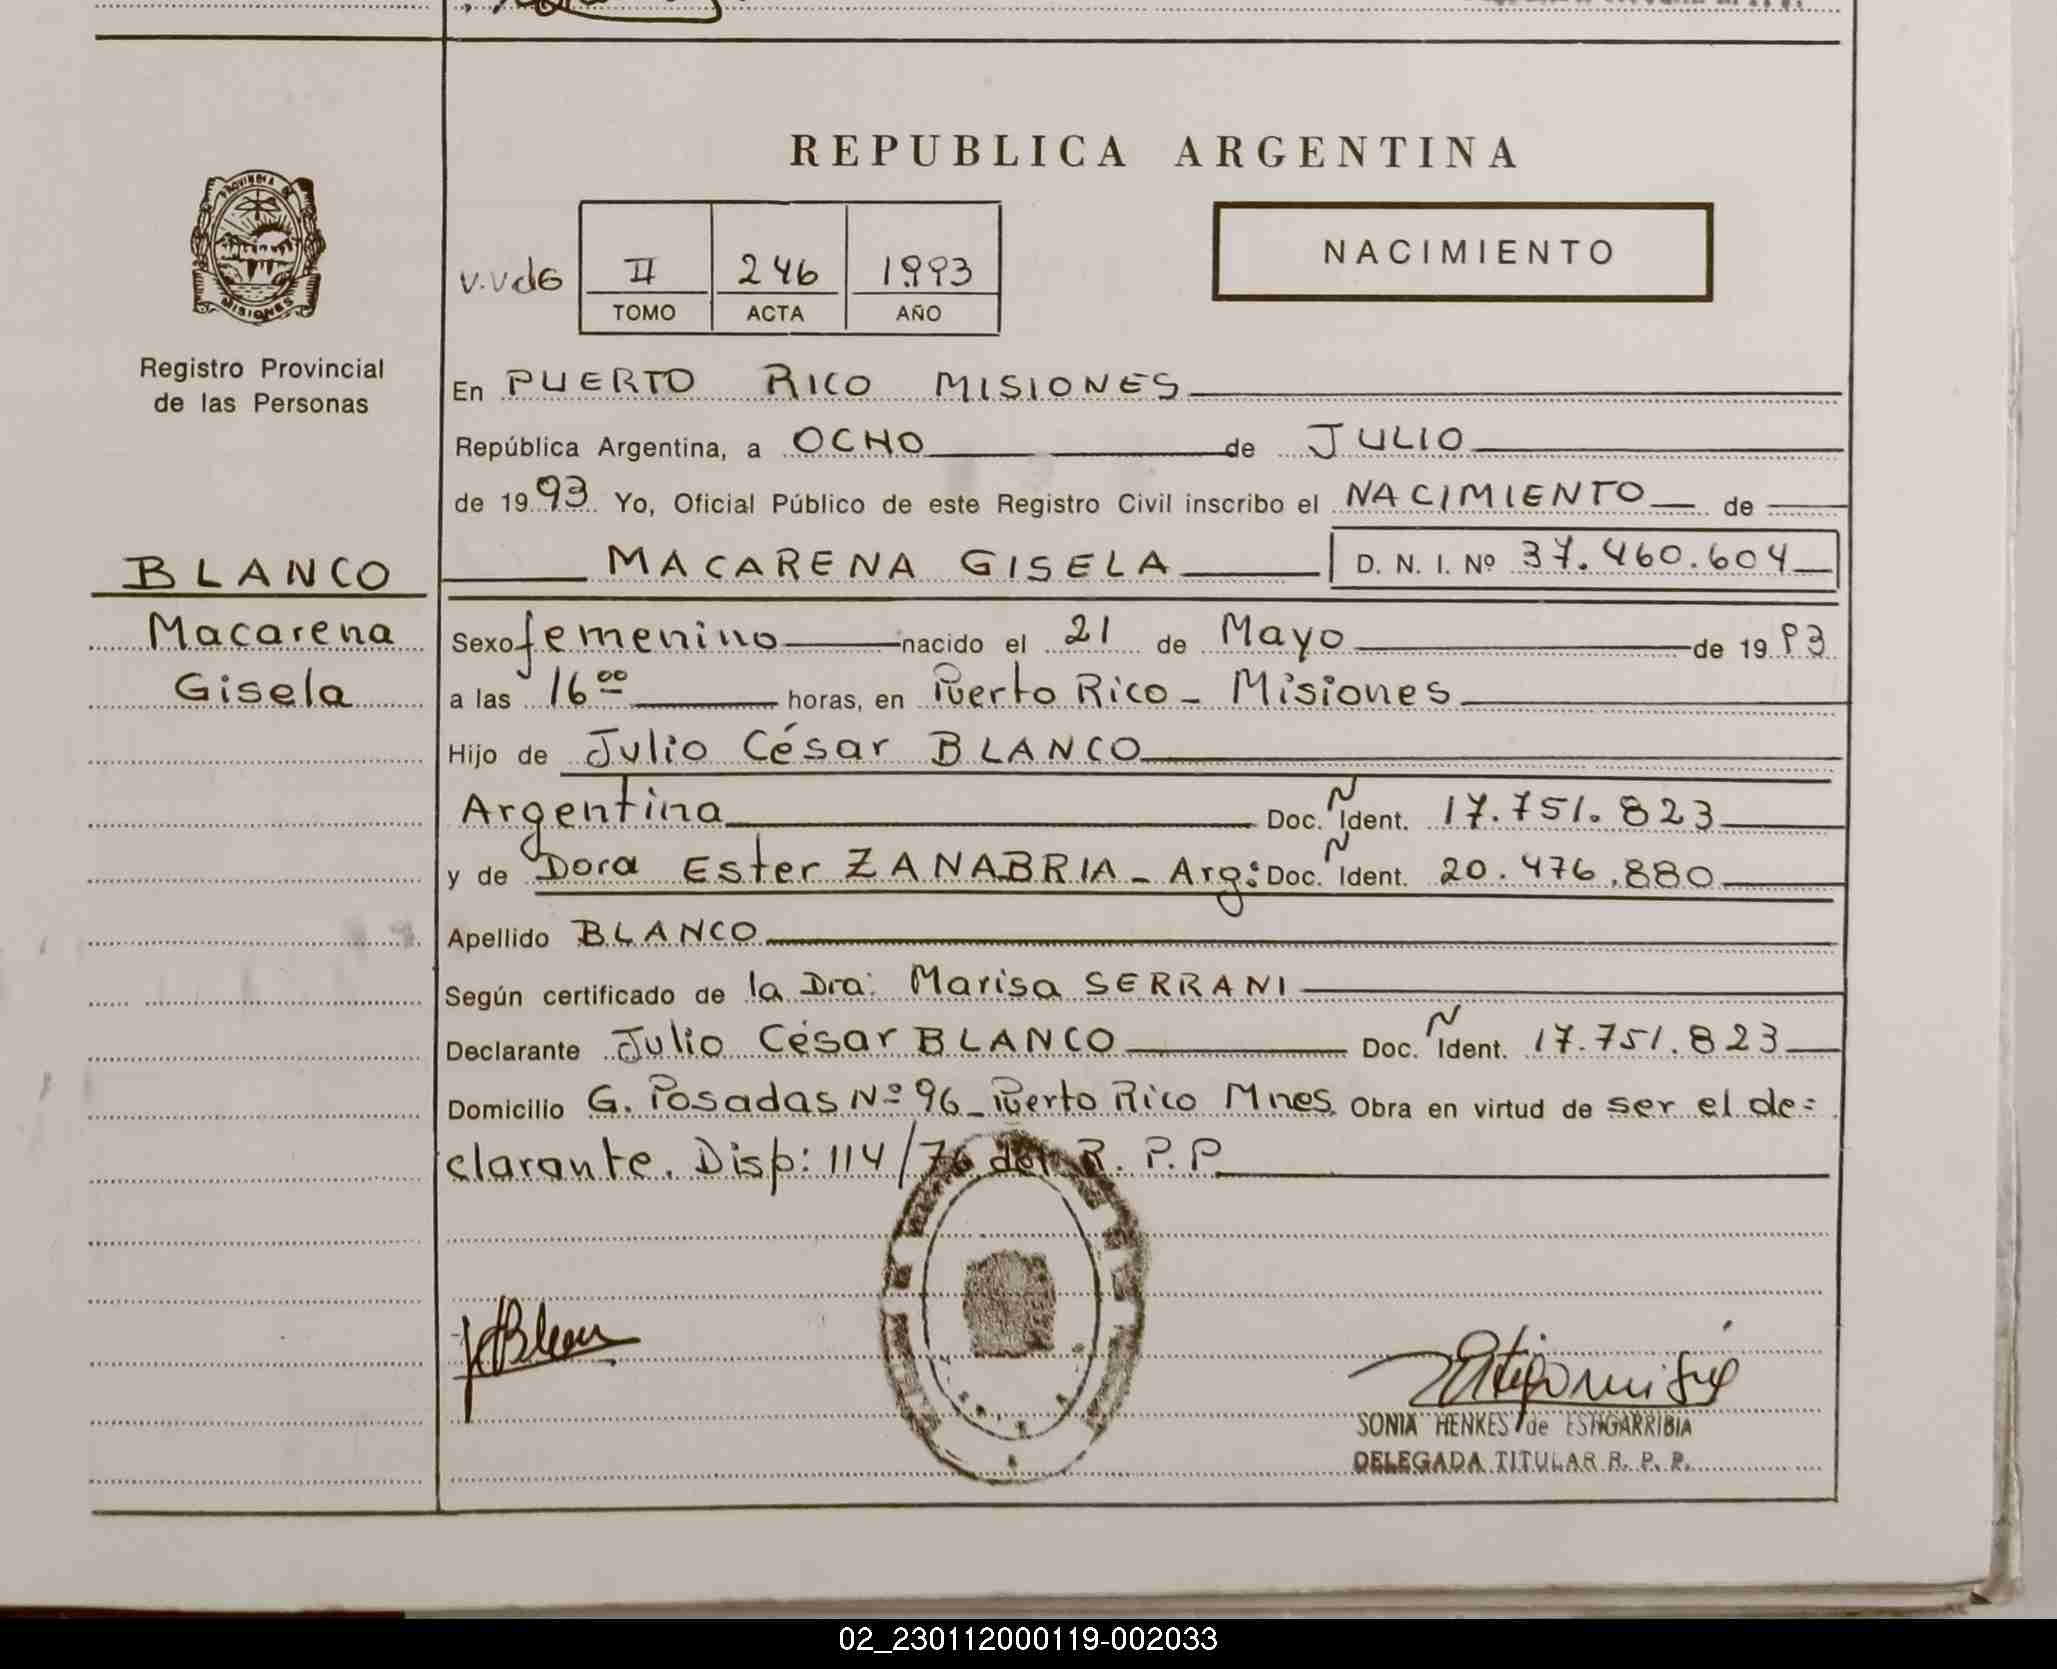 REPUBLICA ARGENTINA
PROVINCIA DE
MISIONES
Registro Provincial
de las Personas
V.VdG
II 246 1993
TOMO ACTA AÑO
NACIMIENTO
BLANCO
Macarena
Gisela
En PUERTO RICO MISIONES
República Argentina, a OCHO de JULIO
de 1993 Yo, Oficial Público de este Registro Civil inscribo el NACIMIENTO de
MACARENA GISELA D. N. I. Nº 37.460.604
Sexo femenino nacido el 21 de Mayo de 1993
a las 16 00 horas, en Puerto Rico - Misiones
Hijo de Julio César BLANCO
Argentina Doc. Ñ Ident. 17.751.823
y de Dora Ester ZANABRIA - Arg: Doc. Ñ Ident. 20.476.880
Apellido BLANCO
Según certificado de la Dra: Marisa SERRANI
Declarante Julio César BLANCO Doc. Ñ Ident. 17.751.823
Domicilio G. Posadas Nº 96 - Puerto Rico Mnes. Obra en virtud de ser el de=
clarante. Disp: 114/76 del R. P. P.
SONIA HENKES de ESTIGARRIBIA
DELEGADA TITULAR R. P. P.
02_230112000119-002033